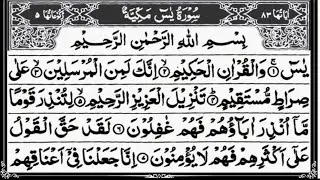 اٰيَاتُهَا ٨٣ سُوْرَةُ يٰسٓ مَكِّيَّةٌ رُكُوْعَاتُهَا ٥
بِسْمِ اللّٰهِ الرَّحْمٰنِ الرَّحِيْمِ
يٰسٓ ۝١ وَالْقُرْاٰنِ الْحَكِيْمِ ۝٢ اِنَّكَ لَمِنَ الْمُرْسَلِيْنَ ۝٣ عَلٰى
صِرَاطٍ مُّسْتَقِيْمٍ ۝٤ تَنْزِيْلَ الْعَزِيْزِ الرَّحِيْمِ ۝٥ لِتُنْذِرَ قَوْمًا
مَّآ اُنْذِرَ اٰبَآؤُهُمْ فَهُمْ غٰفِلُوْنَ ۝٦ لَقَدْ حَقَّ الْقَوْلُ
عَلٰٓى اَكْثَرِهِمْ فَهُمْ لَا يُؤْمِنُوْنَ ۝٧ اِنَّا جَعَلْنَا فِيْٓ اَعْنَاقِهِمْ